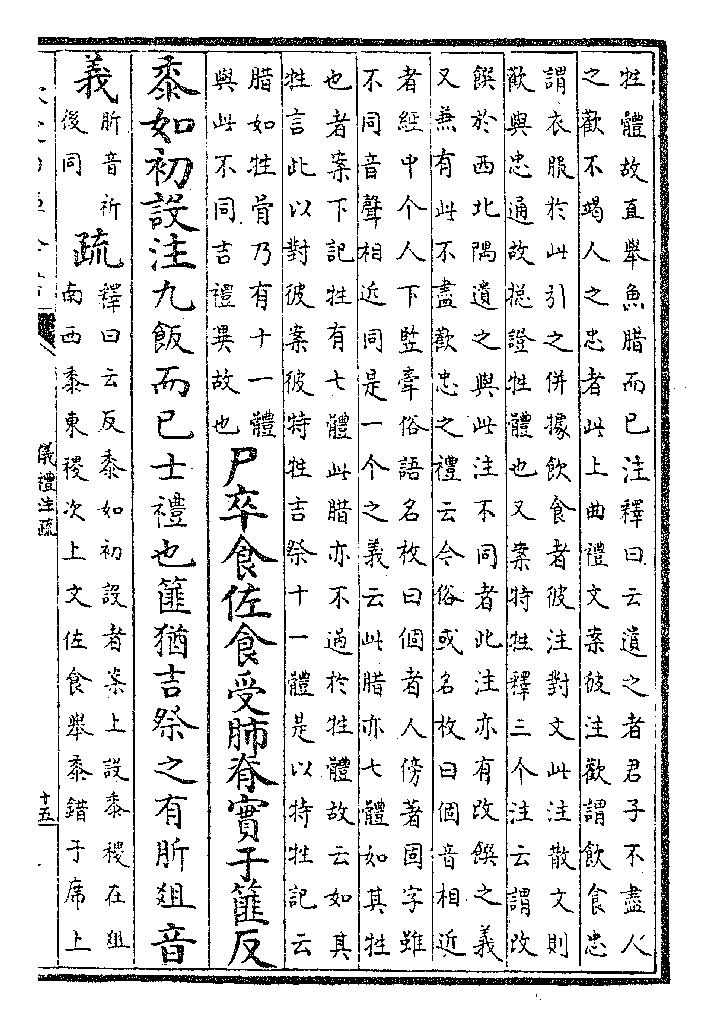 牲體故直舉魚腊而已注釋曰云遺之者君子不盡人
之歡不竭人之忠者此上曲禮文案彼注歡謂飲食忠
謂衣服於此引之併據飲食者彼注對文此注散文則
歡與忠通故揔證牲體也又案特牲釋三个注云謂改
饌於西北隅遺之與此注不同者此注亦有改饌之義
又兼有此不盡歡忠之禮云今俗或名枚曰個音相近
者經中个人下豎牽俗語名枚曰個者人傍著固字雖
不同音聲相近同是一个之義云此腊亦七體如其牲
也者案下記牲有七體此腊亦不過於牲體故云如其
牲言此以對彼案彼特牲吉祭十一體是以特牲記云
腊如牲骨乃有十一體
與此不同吉禮異故也
尸卒食佐食受肺脊實于篚反
黍如初設注九飯而已士禮也篚猶吉祭之有肵俎音
義
肵音祈
後同
疏
釋曰云反黍如初設者案上設黍稷在俎
南西黍東稷次上文佐食舉黍錯于席上
儀禮注疏
十五